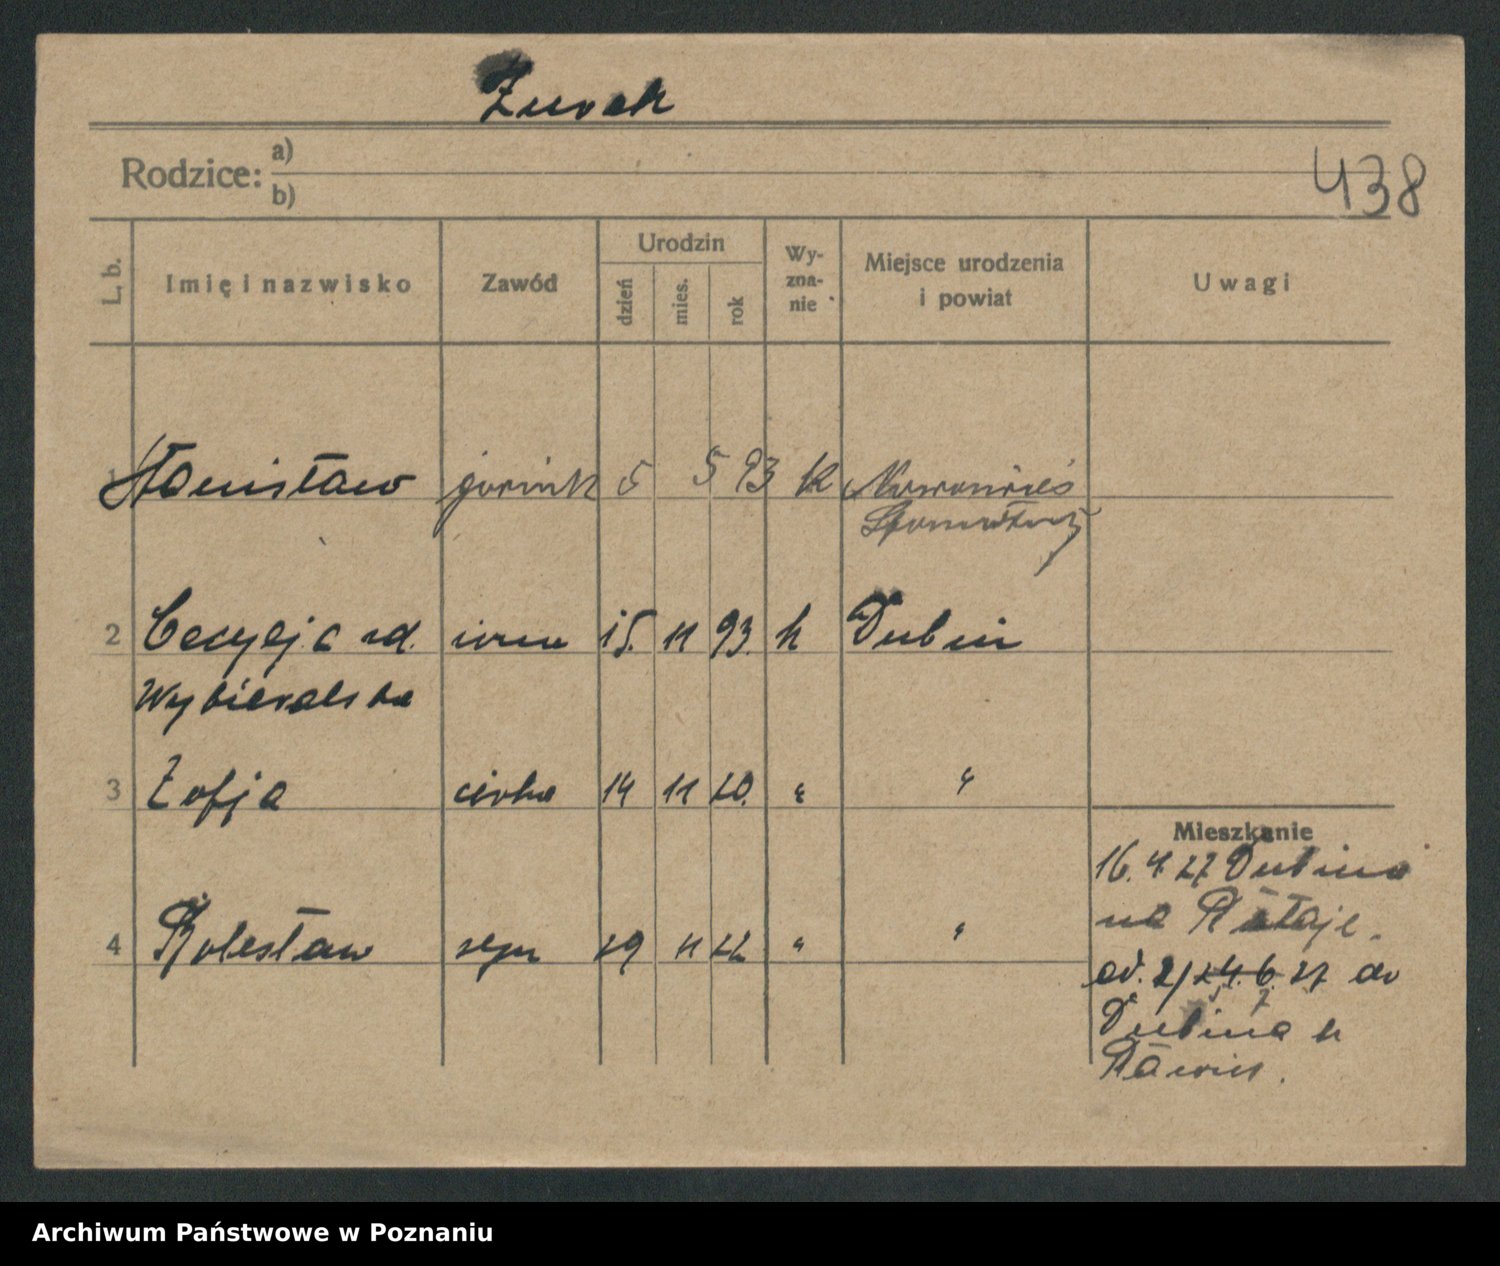 Żurek
Rodzice: a)
b)
438
L. b. Imię i nazwisko Zawód Urodzin dzień mies. rok Wy-zna-nie Miejsce urodzenia i powiat Uwagi
1 Stanisław 5 5 93 k
2 Cecylja ud. żona 15. 11 93. k Dubin
Wybieralska
3 Zofja córka 14 11 20. "  "
Mieszkanie
16. 4. 27 Dubina
na Rataje.
4 Bolesław syn 29 11 22 "  "
od. 2/24. 6. 27 do
5 7
Dubina k
Rawicz.
Archiwum Państwowe w Poznaniu